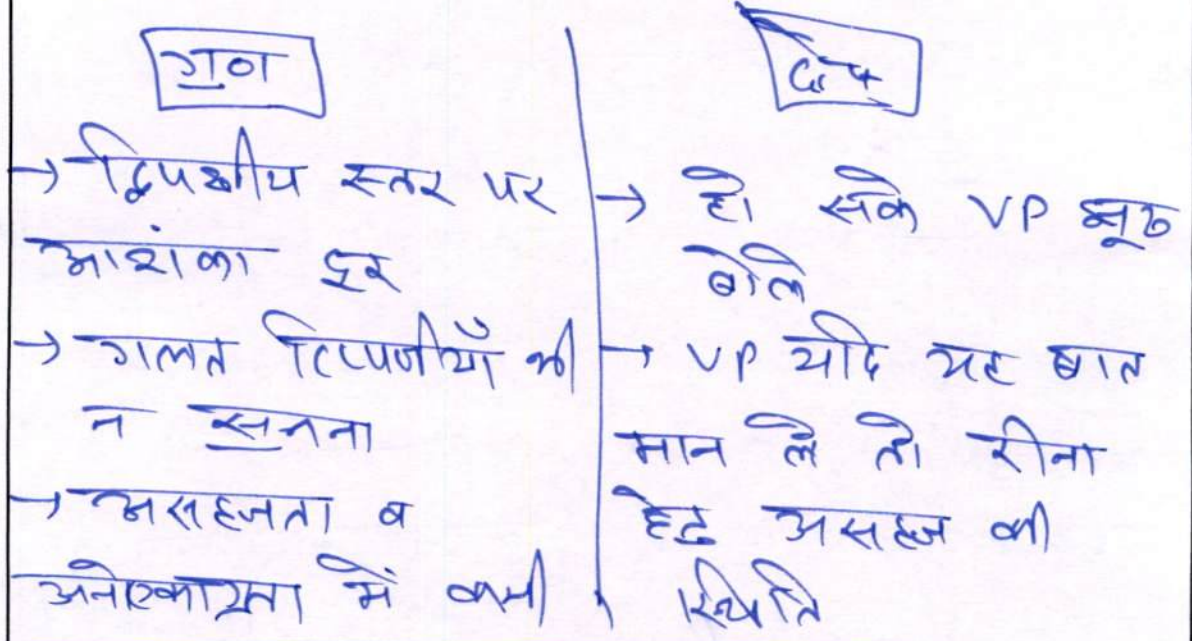 गुण
→ द्विपक्षीय स्तर पर
आशंका दूर
→ गलत टिप्पणीयाँ भी
न सुनना
→ असहजता व
अनेएकाग्रता में कमी
दोष
→ हो सके VP झूठ
बोले
→ VP यदि यह बात
मान ले तो रीना
हेतु असहज की
स्थिति